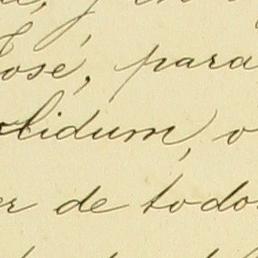 José, para
olidum, o
er de todos